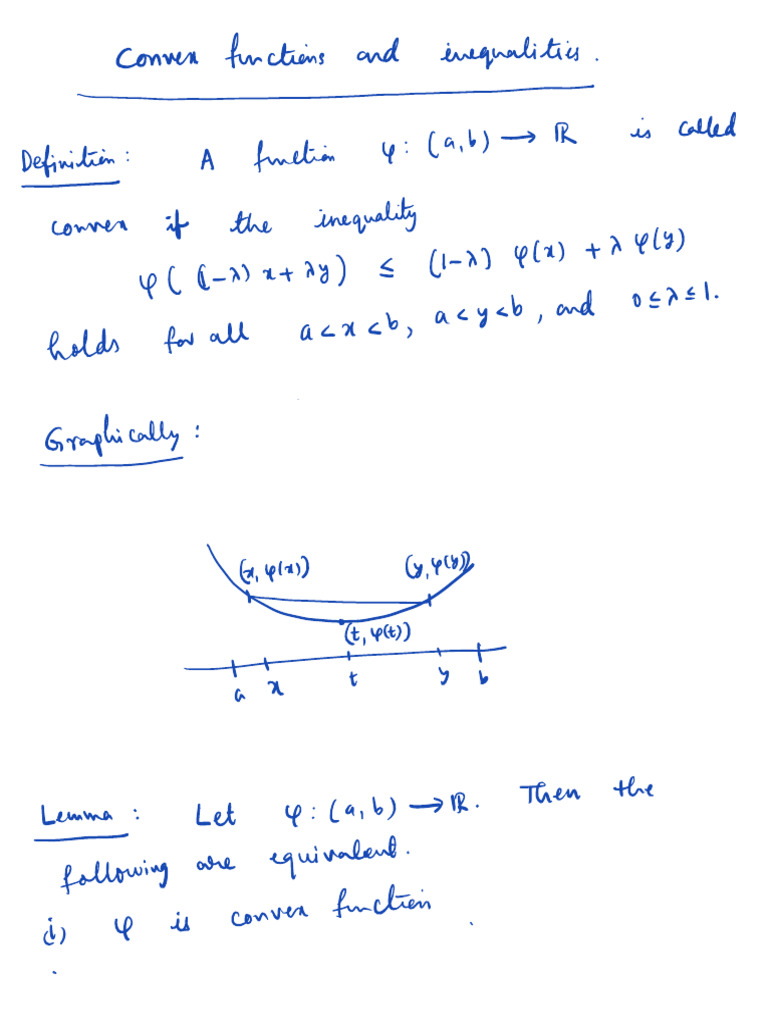 Convex functions and inequalities.
Definition: A function φ: (a,b) → ℝ is called
convex if the inequality
φ( (1-λ) x + λy) ≤ (1-λ) φ(x) + λ φ(y)
holds for all a < x < b, a < y < b, and 0 ≤ λ ≤ 1.
Graphically:
(x, φ(x)) (y, φ(y))
(t, φ(t))
a x t y b
Lemma: Let φ: (a,b) → ℝ. Then the
following are equivalent.
(i) φ is convex function